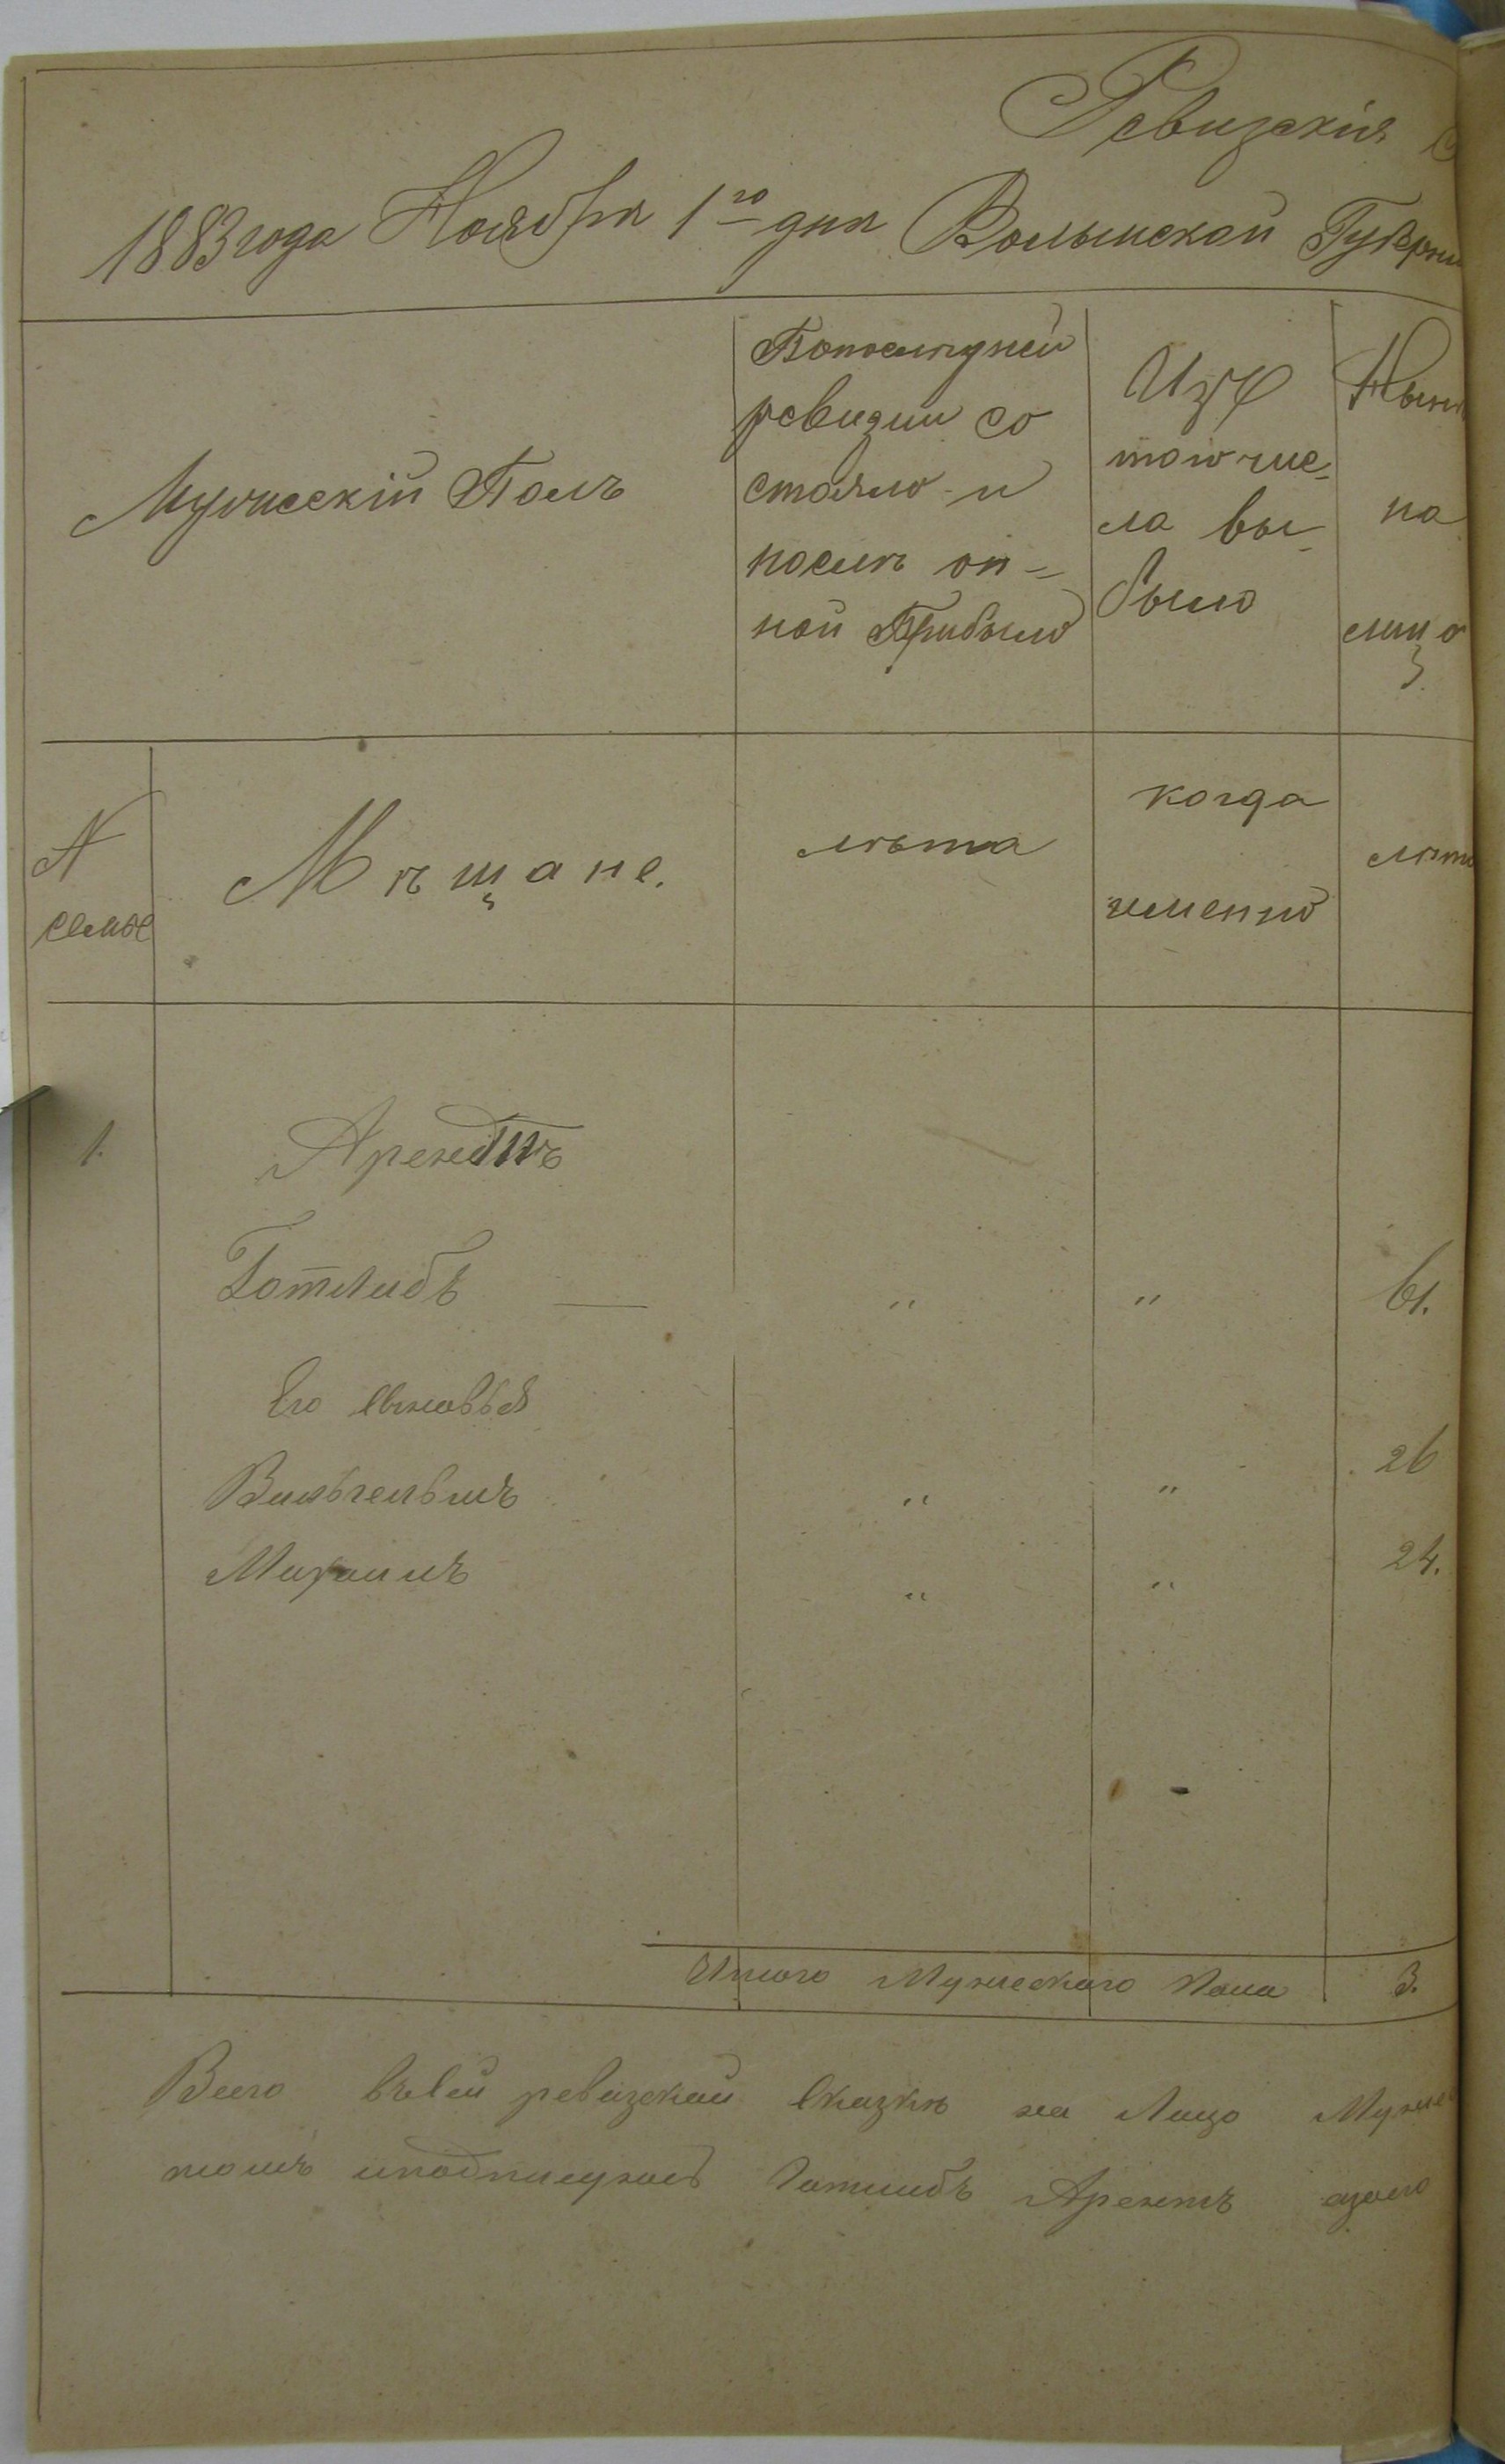 Ревизскія
1883 года Ноября 1го дня Волынской Губерни
Мужескій Полъ
Вопослѣдней
ревизіи со
стояло и
послѣ он=
ной Прибыло
Изъ
того чис-
ла вы-
было
Нын
на
лицо
N
семье
Мѣщане.
лѣта
когда
именно
лѣта
1.
Арендтъ
Готлибъ — " " 61.
Его сыновья
Вильгельмъ " " 26
Михаилъ " " 24.
Итого Мужескаго Пола 3.
Всего въ сей ревизской сказкѣ на Лицо Муже
томъ Готлибъ Арентъ